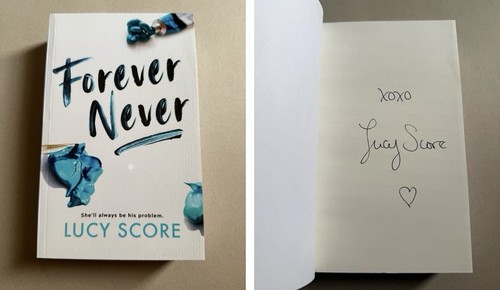 Forever
Never
She'll always be his problem.
LUCY SCORE
xoxo
Lucy Score
♡